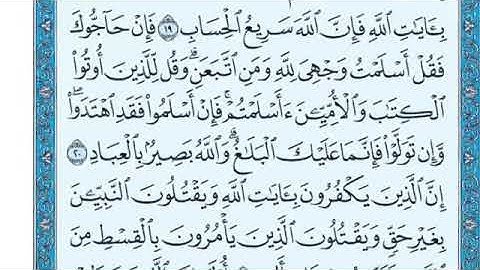 بِـَٔايَٰتِ ٱللَّهِ فَإِنَّ ٱللَّهَ سَرِيعُ ٱلْحِسَابِ ١٩ فَإِنْ حَآجُّوكَ
فَقُلْ أَسْلَمْتُ وَجْهِىَ لِلَّهِ وَمَنِ ٱتَّبَعَنِ ۗ وَقُل لِّلَّذِينَ أُوتُوا۟
ٱلْكِتَٰبَ وَٱلْأُمِّيِّـۧنَ ءَأَسْلَمْتُمْ ۚ فَإِنْ أَسْلَمُوا۟ فَقَدِ ٱهْتَدَوا۟ ۖ
وَّإِن تَوَلَّوْا۟ فَإِنَّمَا عَلَيْكَ ٱلْبَلَٰغُ ۗ وَٱللَّهُ بَصِيرٌۢ بِٱلْعِبَادِ ٢٠
إِنَّ ٱلَّذِينَ يَكْفُرُونَ بِـَٔايَٰتِ ٱللَّهِ وَيَقْتُلُونَ ٱلنَّبِيِّـۧنَ
بِغَيْرِ حَقٍّ وَيَقْتُلُونَ ٱلَّذِينَ يَأْمُرُونَ بِٱلْقِسْطِ مِنَ